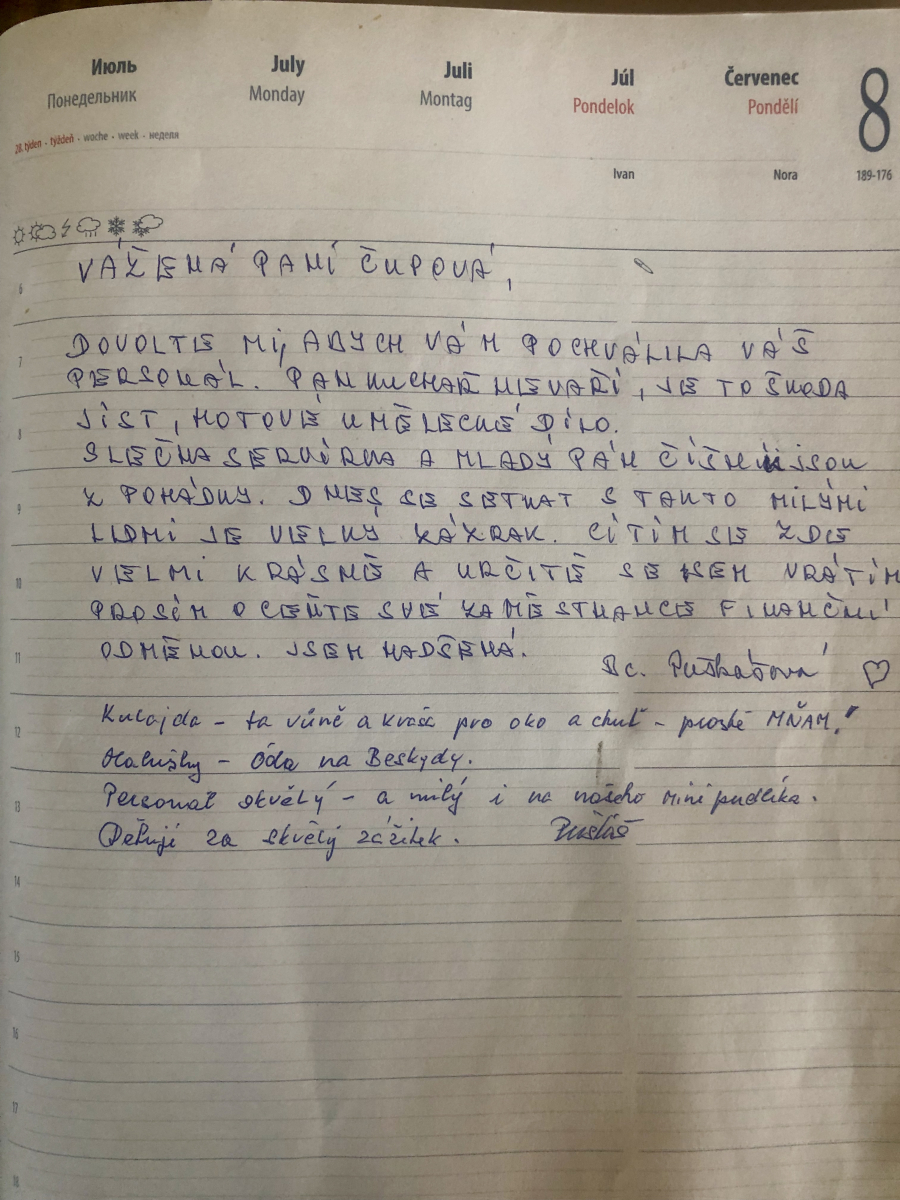 Июль July Juli Júl Červenec 8
Понедельник Monday Montag Pondelok Pondělí
28. týden · týždeň · woche · week · неделя
Ivan Nora 189-176
VÁŽENÁ PANÍ ČUPOVÁ,
6
DOVOLTE MI, ABYCH VÁM POCHVÁLILA VÁŠ
7
PERSONÁL. PAN KUCHAŘ NEVAŘÍ, JE TO ŠKODA
JÍST, HOTOVÉ UMĚLECKÉ DÍLO.
8
SLEČNA SERVÍRKA A MLADÝ PÁN ČÍŠNÍK JSOU
Z POHÁDKY. DNES SE SETKAT S TAKTO MILÝMI
9
LIDMI JE VELKÝ ZÁZRAK. CÍTÍM SE ZDE
VELMI KRÁSNĚ A URČITĚ SE SEM VRÁTÍM
10
PROSÍM OCEŇTE SVÉ ZAMĚSTNANCE FINANČNÍ
ODMĚNOU. JSEM NADŠENÁ.
11
Bc. Puškášová ♡
Kulajda – ta vůně a krása pro oko a chuť – prostě MŇAM!
12
Halušky – Óda na Beskydy.
Personál skvělý – a milý i na našeho minipudlíka.
13
Děkuji za skvělý zážitek. Puškáš
14
15
16
17
18